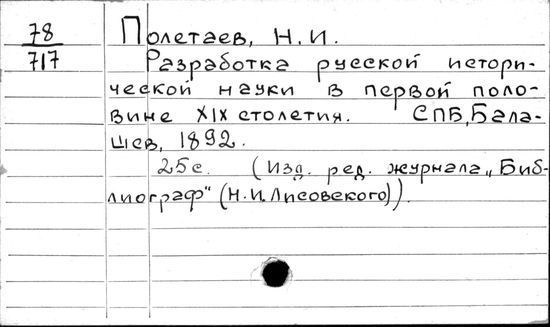 78
717
Полетаев, Н.И.
Разработка русской истори-
ческой науки в первой поло-
вине XIX столетия. СПБ, Бала-
шев, 1892.
25 с. (Изд. ред. журнала „Биб-
лиограф" (Н.И. Лисовского)).